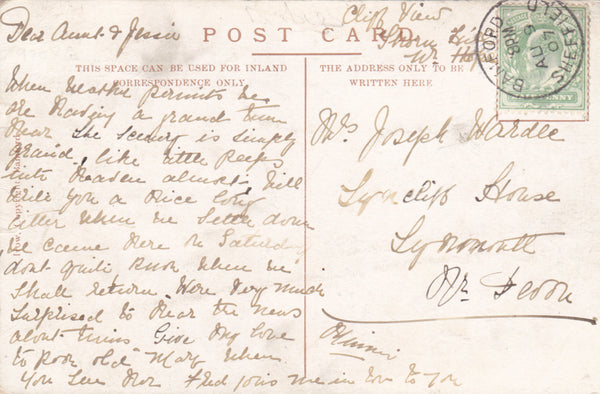 Dear Aunt & Jessie
Cliff View
Thorn Hill
POST CARD
THIS SPACE CAN BE USED FOR INLAND
CORRESPONDENCE ONLY.
THE ADDRESS ONLY TO BE
WRITTEN HERE
BAMFORD
SHEFFIELD
AU 9
07
When weather permits we
are having a grand time
here The Scenery is simply
grand, like little peeps
into Heaven almost. Will
write you a nice long
letter when we settle down
we came here on Saturday
dont quite know when we
shall return Were very much
surprised to hear the news
about twins Give my love
to poor old Mary when
you see her Fred joins me in love to you
Mrs Joseph Wardle
Lyncliff House
Lynmouth
Nr Devon